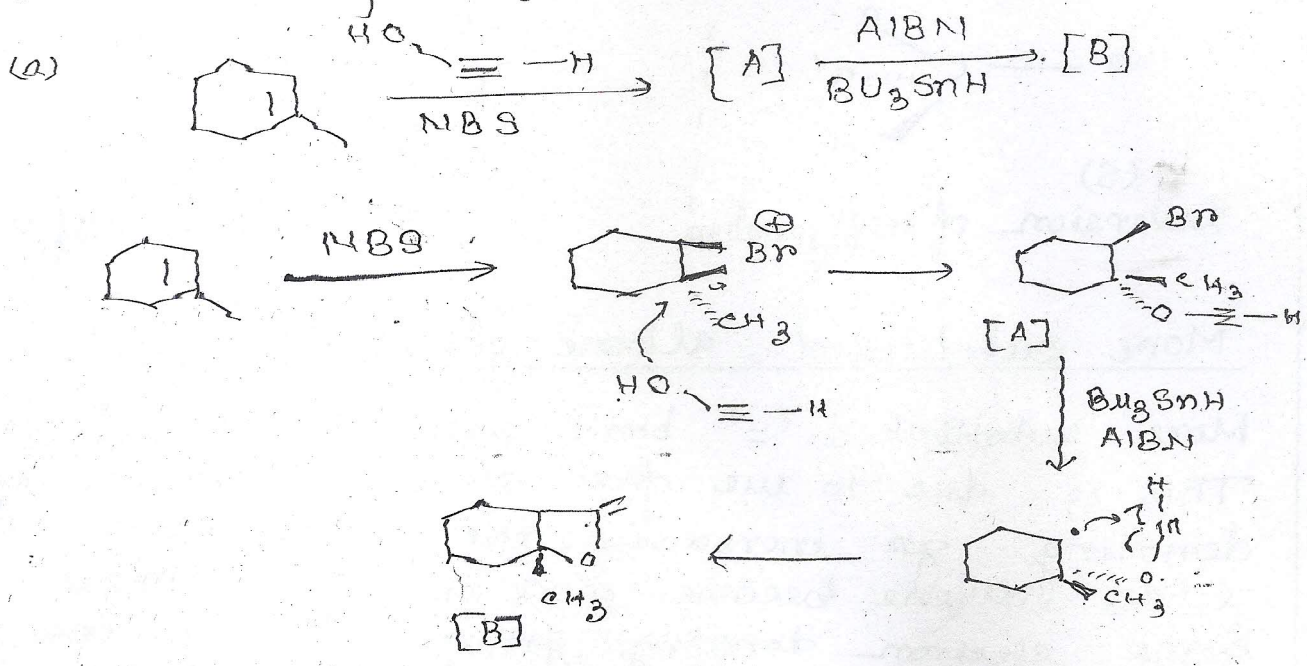 (a)
HO
≡ —H
NBS
[A]
AIBN
BU3SnH
[B]
NBS
⊕
Br
CH3
HO
≡ —H
Br
CH3
O —≡—H
[A]
Bu3SnH
AIBN
H
O
CH3
O
CH3
[B]